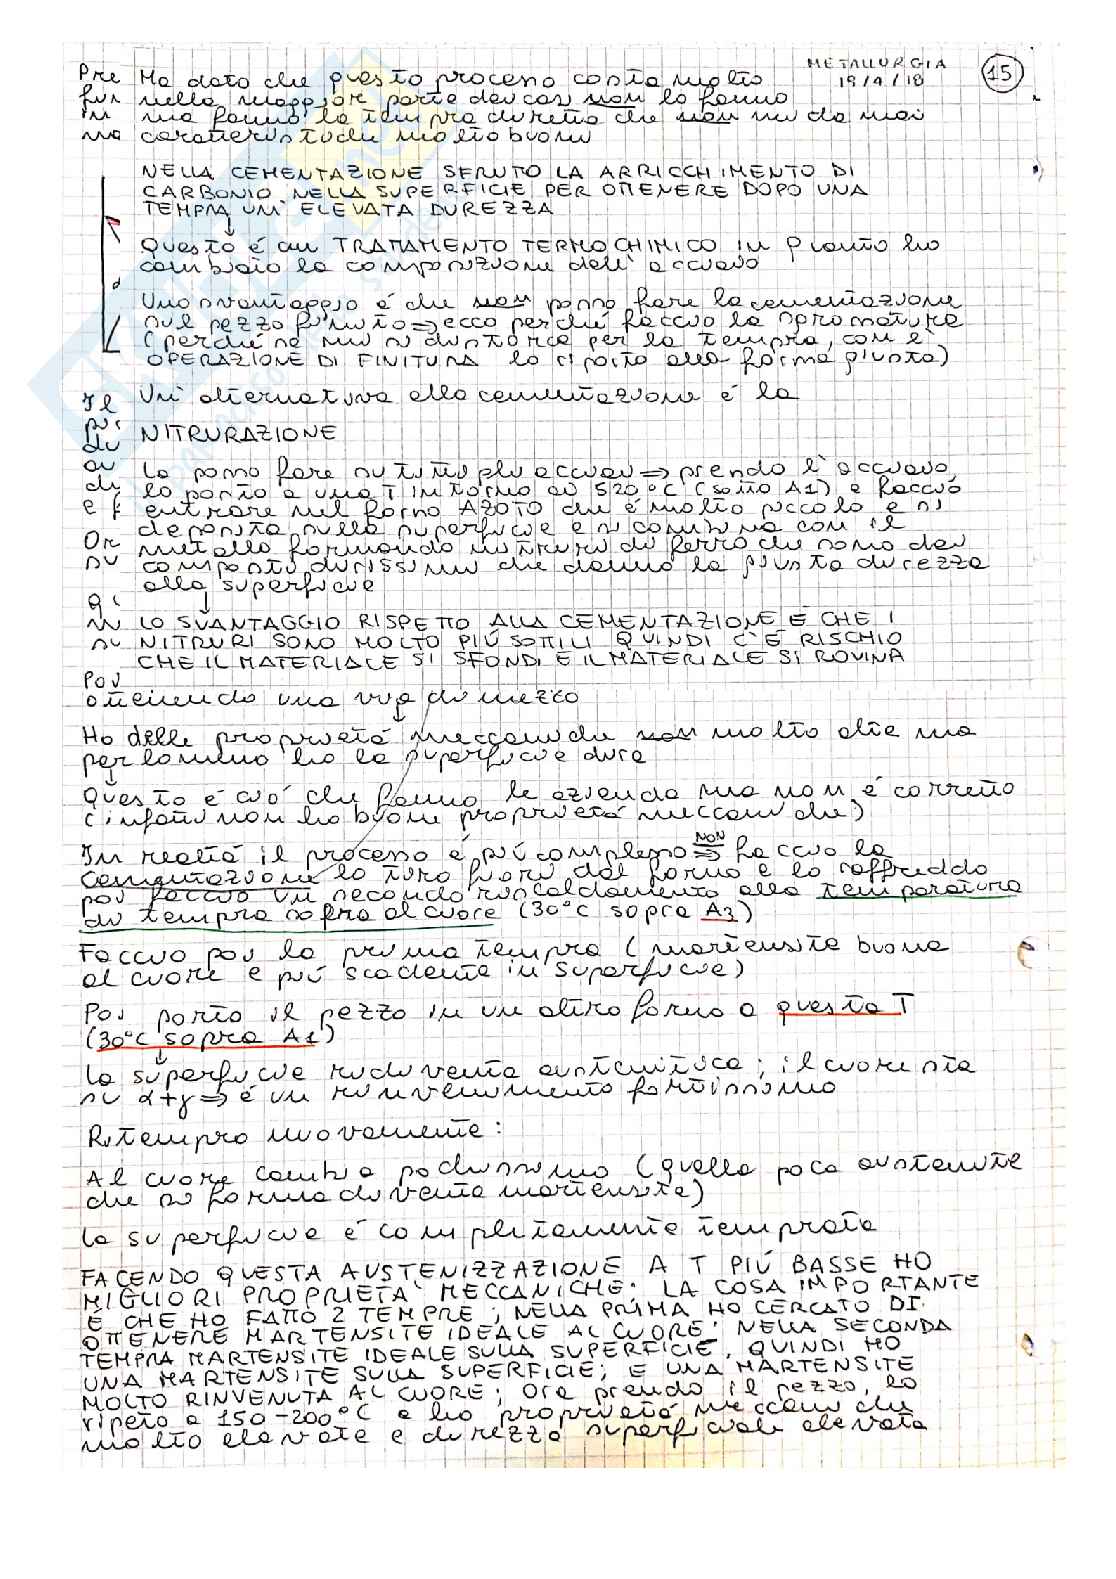 METALLURGIA
19/4/18
15
Pre Ma dato che questo processo costa molto
fur nella maggior parte dei casi non lo fanno
in ma fanno la tempra diretta che non mi da mai
ma caratteristiche molto buone
NELLA CEMENTAZIONE SFRUTTO LA ARRICCHIMENTO DI
CARBONIO NELLA SUPERFICIE PER OTTENERE DOPO UNA
TEMPRA UN' ELEVATA DUREZZA
↓
Questo é un TRATTAMENTO TERMOCHIMICO in quanto ho
cambiato la composizione dell' acciaio
Uno svantaggio é che non posso fare la cementazione
sul pezzo finito ⇒ ecco perché faccio la sgrossatura
(perché se mi si distorce per la tempra, con l'
OPERAZIONE DI FINITURA lo riporto alla forma giusta)
Il Un' alternativa alla cementazione é la
NITRURAZIONE
La posso fare su tutti gli acciai ⇒ prendo l'acciaio,
lo porto a una T intorno ai 520°C (sotto A1) e faccio
entrare nel forno AZOTO che é molto piccolo e si
deposita sulla superficie e si combina con il
Or metallo formando nitruri di ferro che sono dei
su composti durissimi che danno la giusta durezza
alla superficie
↓
LO SVANTAGGIO RISPETTO ALLA CEMENTAZIONE É CHE I
NITRURI SONO MOLTO PIÚ SOTTILI QUINDI C'É RISCHIO
CHE IL MATERIALE SI SFONDI E IL MATERIALE SI ROVINA
Poi
ottenendo una via di mezzo
↓
Ho delle proprietá meccaniche non molto alte ma
perlomeno ho la superficie dura
↓
Questo é ció che fanno le aziende ma non é corretto
(infatti non ho buone proprietá meccaniche)
In realtá il processo é piú complesso ⇒ NON faccio la
cementazione lo tiro fuori dal forno e lo raffreddo
poi faccio un secondo riscaldamento alla temperatura
di tempra sopra al cuore (30°C sopra A3)
Faccio poi la prima tempra (martensite buona
al cuore e piú scadente in superficie)
Poi porto il pezzo in un altro forno a questa T
(30°C sopra A1)
↓
La superficie ridiventa austenitica; il cuore sta
su α+γ ⇒ é un rinvenimento fortissimo
Ritempro nuovamente:
Al cuore cambia pochissimo (quella poca austenite
che si forma diventa martensite)
La superficie é completamente temprata
FACENDO QUESTA AUSTENIZZAZIONE A T PIÚ BASSE HO
MIGLIORI PROPRIETA' MECCANICHE: LA COSA IMPORTANTE
É CHE HO FATTO 2 TEMPRE; NELLA PRIMA HO CERCATO DI
OTTENERE MARTENSITE IDEALE AL CUORE; NELLA SECONDA
TEMPRA MARTENSITE IDEALE SULLA SUPERFICIE. QUINDI HO
UNA MARTENSITE SULLA SUPERFICIE; E UNA MARTENSITE
MOLTO RINVENUTA AL CUORE; Ora prendo il pezzo, lo
ripeto a 150-200°C e ho proprietá meccaniche
molto elevate e durezza superficiale elevata